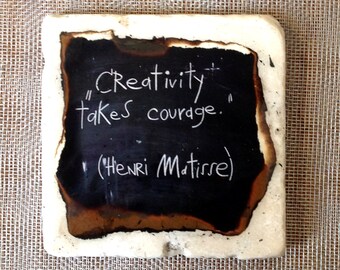 „Creativity
takes courage."
(Henri Matisse)